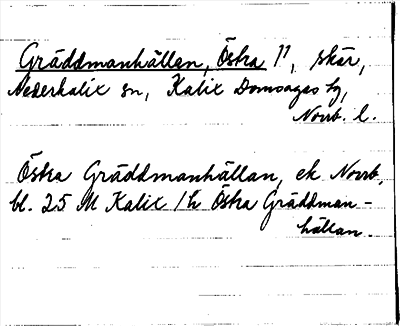 Gräddmanhällen, Östra 11, skär,
Nederkalix sn, Kalix Domsagas tg,
Norrb. l.
Östra Gräddmanhällan, ek Norrb.
bl. 25 M Kalix 1h Östra Gräddman-
hällan.